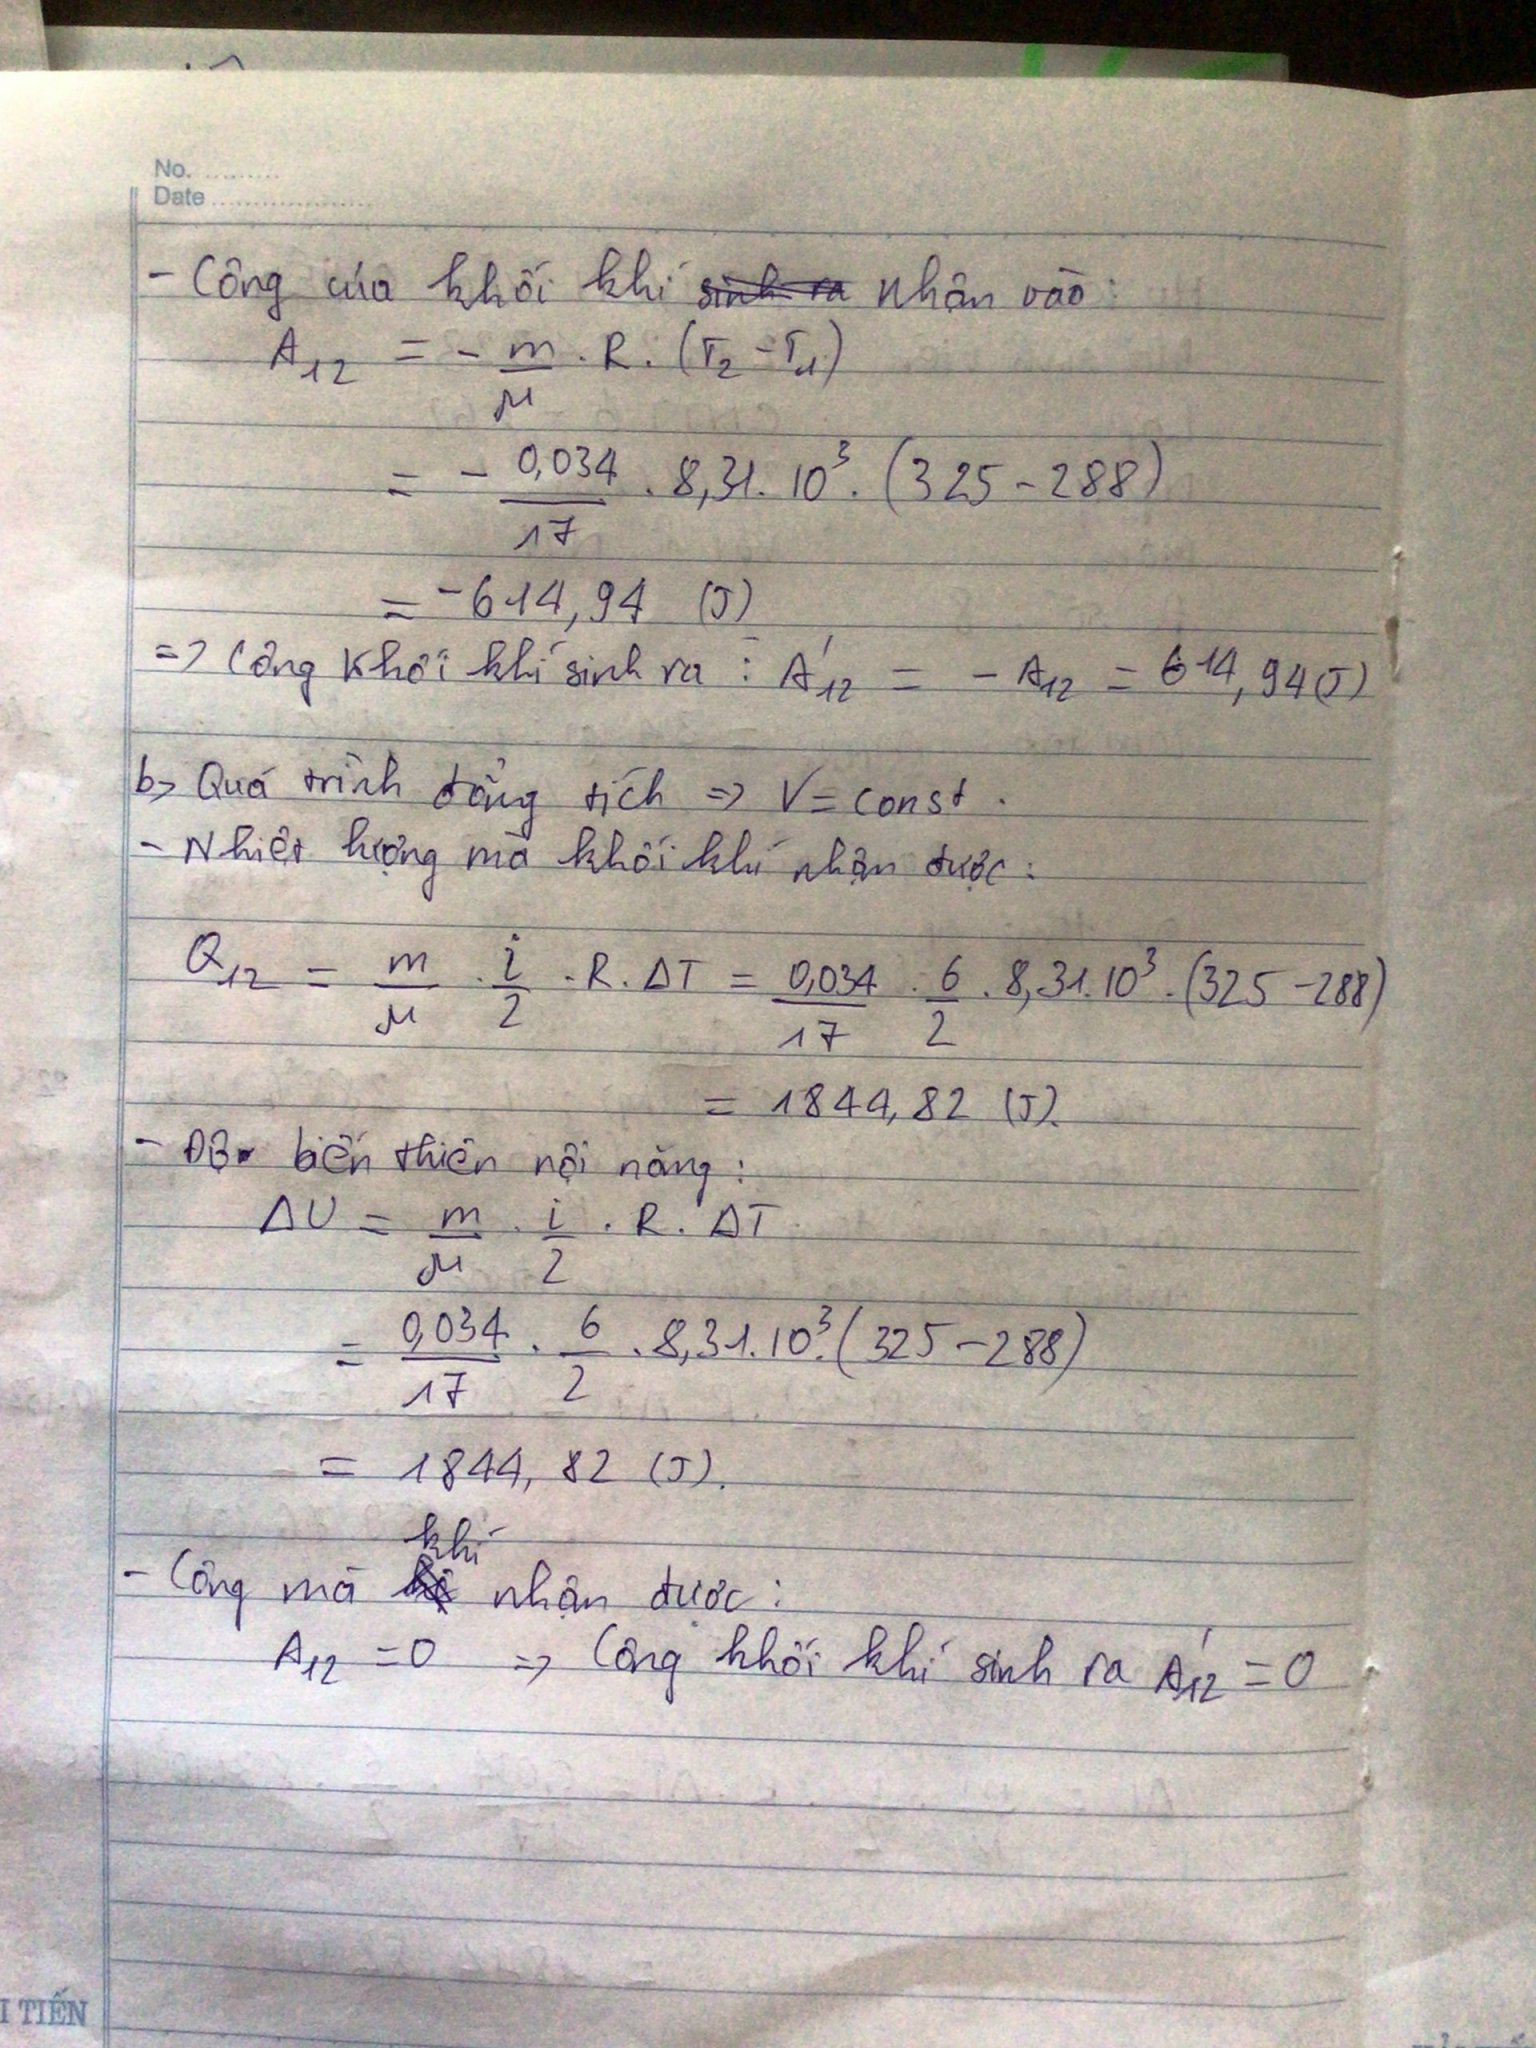 No. .........
Date ...................
- Công của khối khí nhận vào:
A₁₂ = - m/μ . R. (T₂ - T₁)
= - 0,034/17 . 8,31. 10³. (325 - 288)
= -614,94 (J)
=> Công khối khí sinh ra : A'₁₂ = - A₁₂ = 614,94 (J)
b> Quá trình đẳng tích => V = const .
- Nhiệt lượng mà khối khí nhận được:
Q₁₂ = m/μ . i/2 . R. ΔT = 0,034/17 . 6/2 . 8,31. 10³. (325 - 288)
= 1844,82 (J).
- Độ biến thiên nội năng:
ΔU = m/μ . i/2 . R. ΔT
= 0,034/17 . 6/2 . 8,31. 10³. (325 - 288)
= 1844, 82 (J).
- Công mà khí nhận được:
A₁₂ = 0 => Công khối khí sinh ra A'₁₂ = 0
I TIẾN